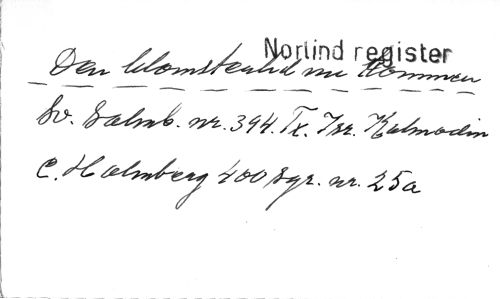 Norlind register
Den blomstertid nu kommer
Sv. Psalmb. nr. 394. Tx. Isr. Kolmodin
C. Holmberg 400 Sgr. nr. 25a